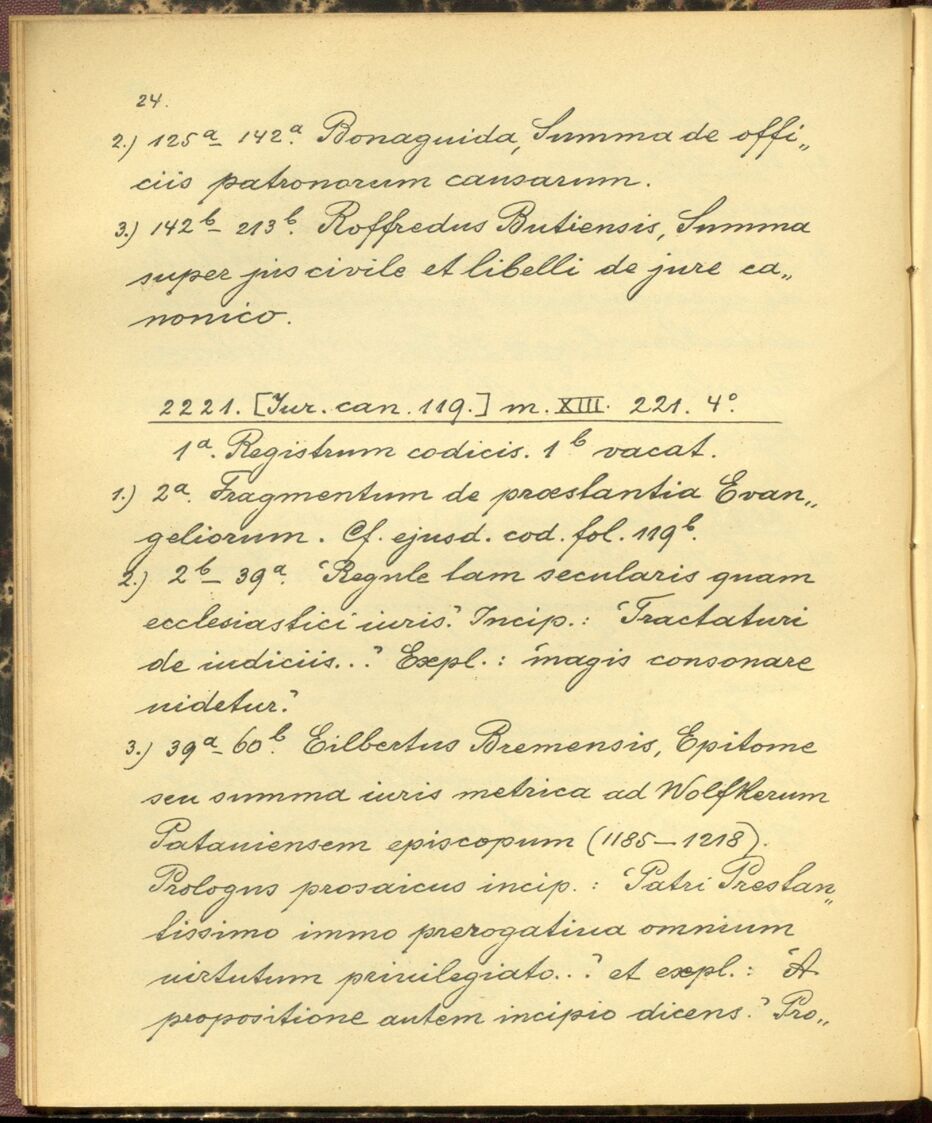 24.
2.) 125ª– 142ª. Bonaguida, Summa de offi„
ciis patronorum causarum.
3.) 142ᵇ– 213ᵇ. Roffredus Butiensis, Summa
super jus civile et libelli de jure ca„
nonico.
2221. [Jur. can. 119.] m. XIII. 221. 4°.
1ª. Registrum codicis. 1ᵇ vacat.
1.) 2ª. Fragmentum de præstantia Evan„
geliorum. Cf. ejusd. cod. fol. 119ᵇ.
2.) 2ᵇ– 39ª. 'Regule tam secularis quam
ecclesiastici iuris.' Incip.: 'Tractaturi
de iudiciis...' Expl.: 'magis consonare
uidetur.'
3.) 39ª– 60ᵇ. Eilbertus Bremensis, Epitome
seu summa iuris metrica ad Wolfkerum
Patauiensem episcopum (1185–1218).
Prologus prosaicus incip.: 'Patri Prestan„
tissimo immo prerogatiua omnium
uirtutum priuilegiato...' et expl.: 'A
propositione autem incipio dicens.' Pro„